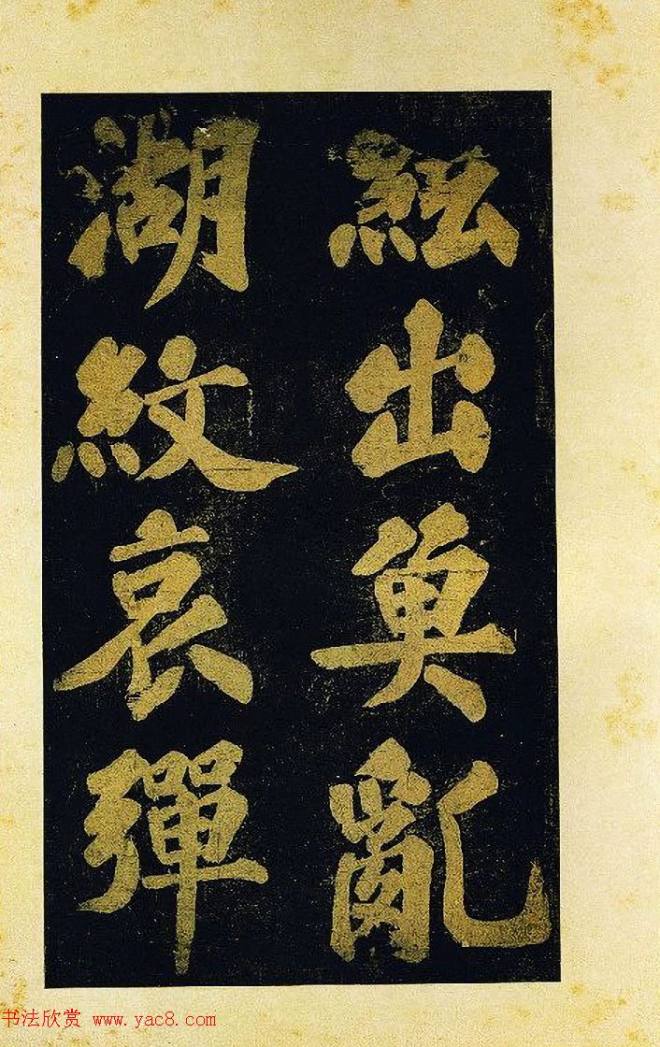 出奐亂
湖紋哀彈
书法欣赏 www.yac8.com